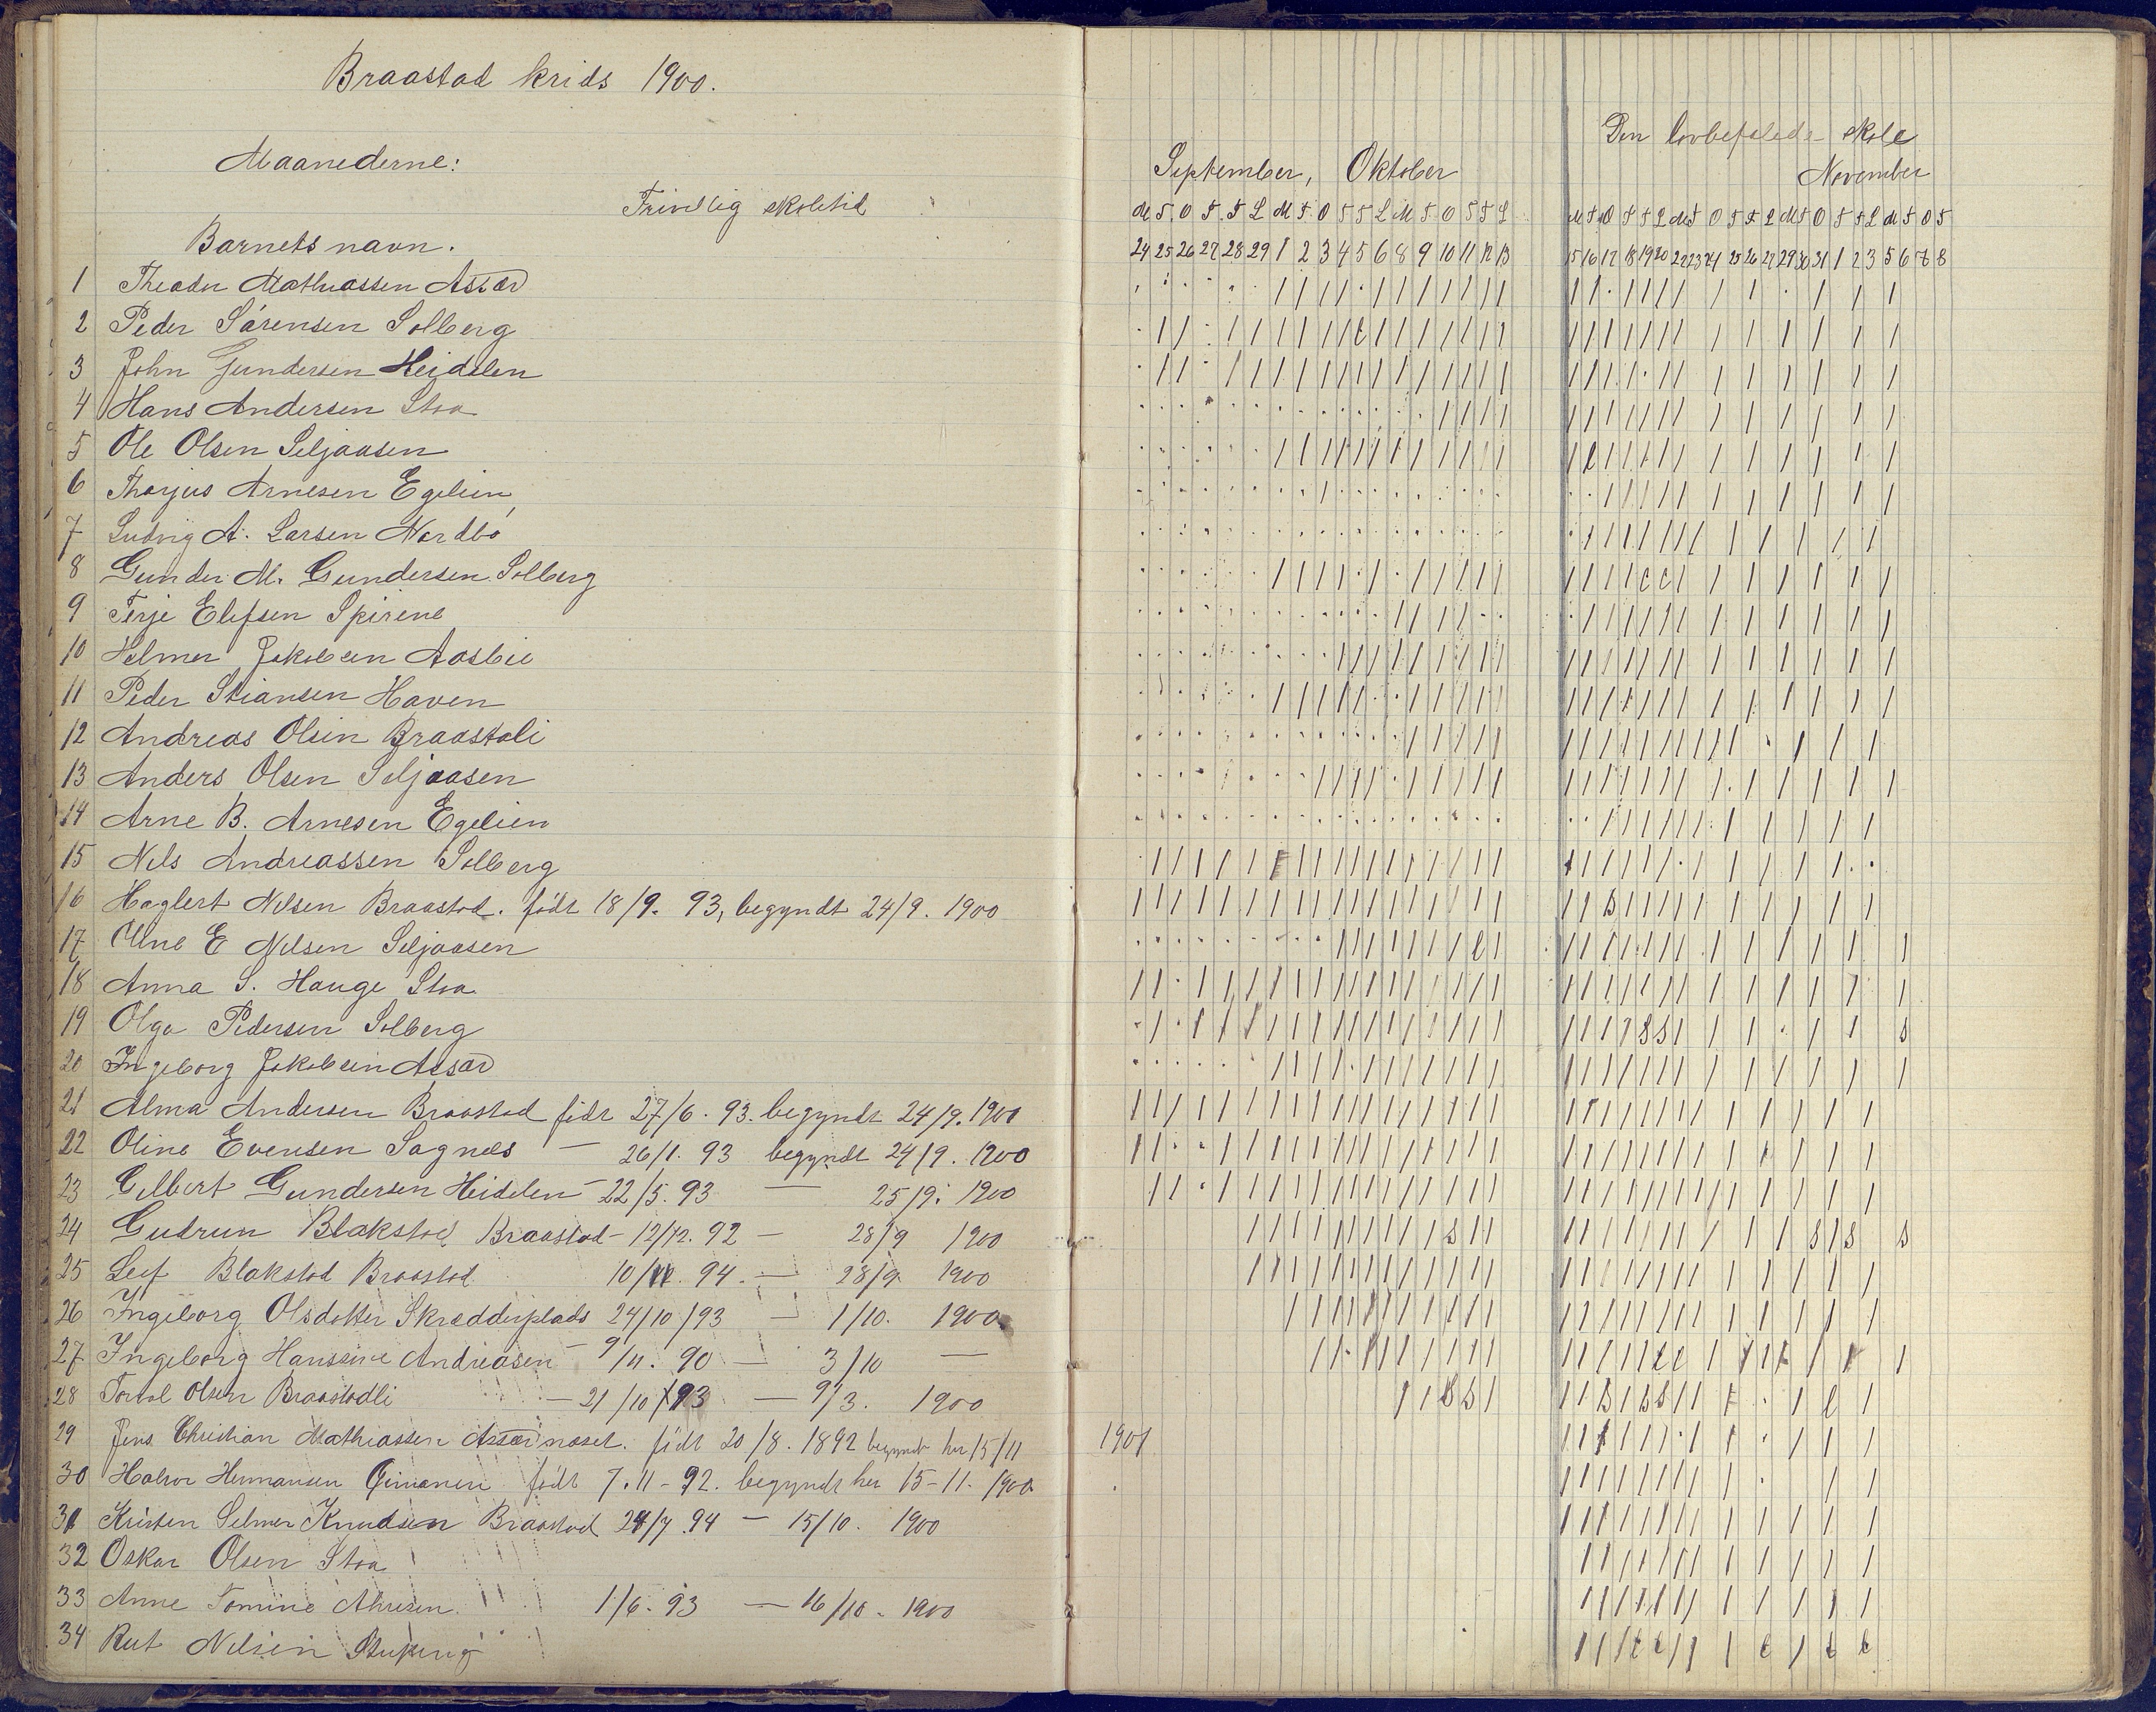 Braastad krids 1900.
Maanederne:
Frivillig skoletid
Barnets navn.
1 Theodor Mathiassen Assær
2 Peder Sørensen Solberg
3 John Gundersen Heidelen
4 Hans Andersen Stoa
5 Ole Olsen Seljaasen
6 Thorjus Arnesen Egelien
7 Ludvig A. Larsen Nordbø
8 Gunder M. Gundersen Solberg
9 Terje Elefsen Spirene
10 Helmer Jakobsen Aasbie
11 Peder Stiansen Haven
12 Andreas Olsen Braastali
13 Anders Olsen Seljaasen
14 Arne B. Arnesen Egelien
15 Nils Andreassen Solberg
16 Haglert Nilsen Braastad. født 18/9. 93, begyndt 24/9. 1900
17 E Nilsen Seljaasen
18 Anna S. Hauge Stoa
19 Olga Pedersen Solberg
20 Ingeborg Jakobsen Assær
21 Alma Andersen Braastad født 27/6. 93. begyndt 24/9. 1900
22 Oline Evensen Sagnes — 26/1. 93 begyndt 24/9. 1900
23 Gilbert Gundersen Heidelen — 22/5. 93 — 25/9. 1900
24 Gudrun Blakstad Braastad — 12/12. 92 — 28/9 1900
25 Leif Blakstad Braastad 10/ 94. — 28/9 1900
26 Ingeborg Olsdatter Skrædderplads 24/10/93 — 1/10. 1900
27 Ingeborg Hanssine Andreasen — 9/11. 90 — 3/10 —
28 Olsen Braastadli — 21/10/93 — 9/3. 1900
29 Jens Christian Mathiassen Assærnaset. født 20/8. 1892 begyndt her 15/11 1901
30 Halvor Hermansen født 7.11-92. begyndt her 15-11. 1900
31 Kristen Selmer Knudsen Braastad 24/7. 94 — 15/10. 1900
32 Oskar Olsen Stoa
33 Anne Tomine 1/6. 93 — 16/10. 1900
34 Rut Nilsen
September, Oktober
M T O T F L M T O T F L M T O T F L
24 25 26 27 28 29 1 2 3 4 5 6 8 9 10 11 12 13
Den lovbefalede skole
November
M T O T F L M T O T F L M T O T F L M T O T
15 16 17 18 19 20 22 23 24 25 26 27 29 30 31 1 2 3 5 6 7 8